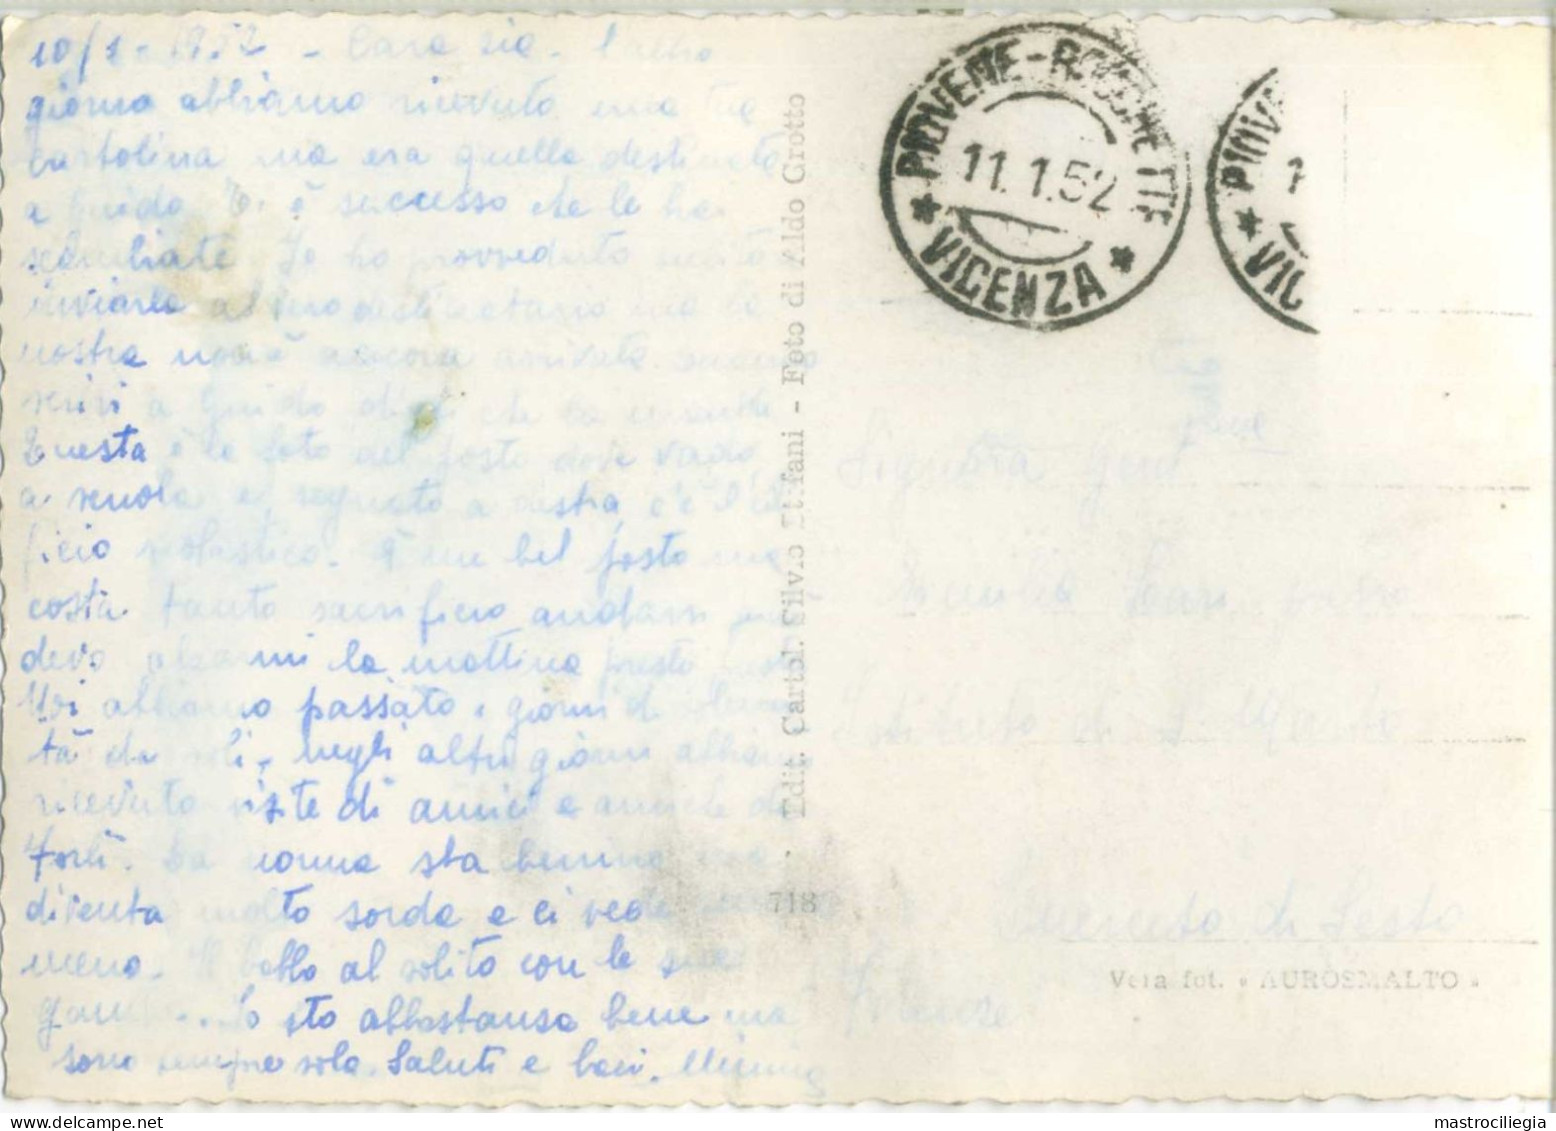 10/1-1952 - Cara zia. L'altro
giorno abbiamo ricevuto una tua
cartolina ma era quella destinata
a Guido. è successo che le hai
scambiate. Io ho provveduto subito a
inviarla al vero destinatario ma la
nostra non è ancora arrivata.
scrivi a Guido che la mandi
Questa è la foto del posto dove vado
a scuola e segnato a destra c'è l'edi
ficio scolastico. È un bel posto ma
costa tanto sacrificio andarci
devo alzarmi la mattina presto
Noi abbiamo passato i giorni di
tà da soli, negli altri giorni abbiamo
ricevuto visite di amici e amiche di
Forlì. La nonna sta benino ma
diventa molto sorda e ci vede
meno. Il babbo al solito con le sue
gambe... Io sto abbastanza bene ma
sono sempre sola. Saluti e baci. Mimma
Ediz. Cartol. Silvio Stefani - Foto di Aldo Grotto
718
PIOVENE-ROCCHETTE
11.1.52
VICENZA
PIOV
1
VIC
Signora
Istituto di S. Marta
di Sesto
Firenze
Vera fot. « AUROSMALTO »
mastrociliegia